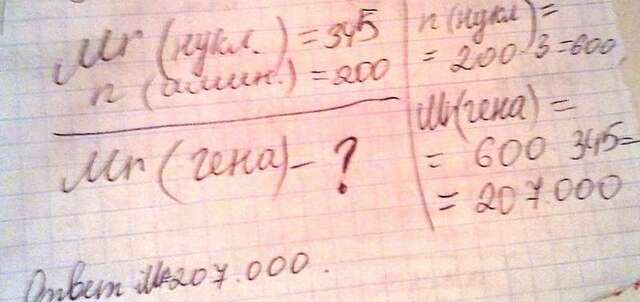 Mr (нукл.) = 345
n (амин.) = 200
Mr (гена) - ?
n (нукл) =
= 200 · 3 = 600
Mr (гена) =
= 600 345 =
= 207.000
Ответ Mr 207.000.